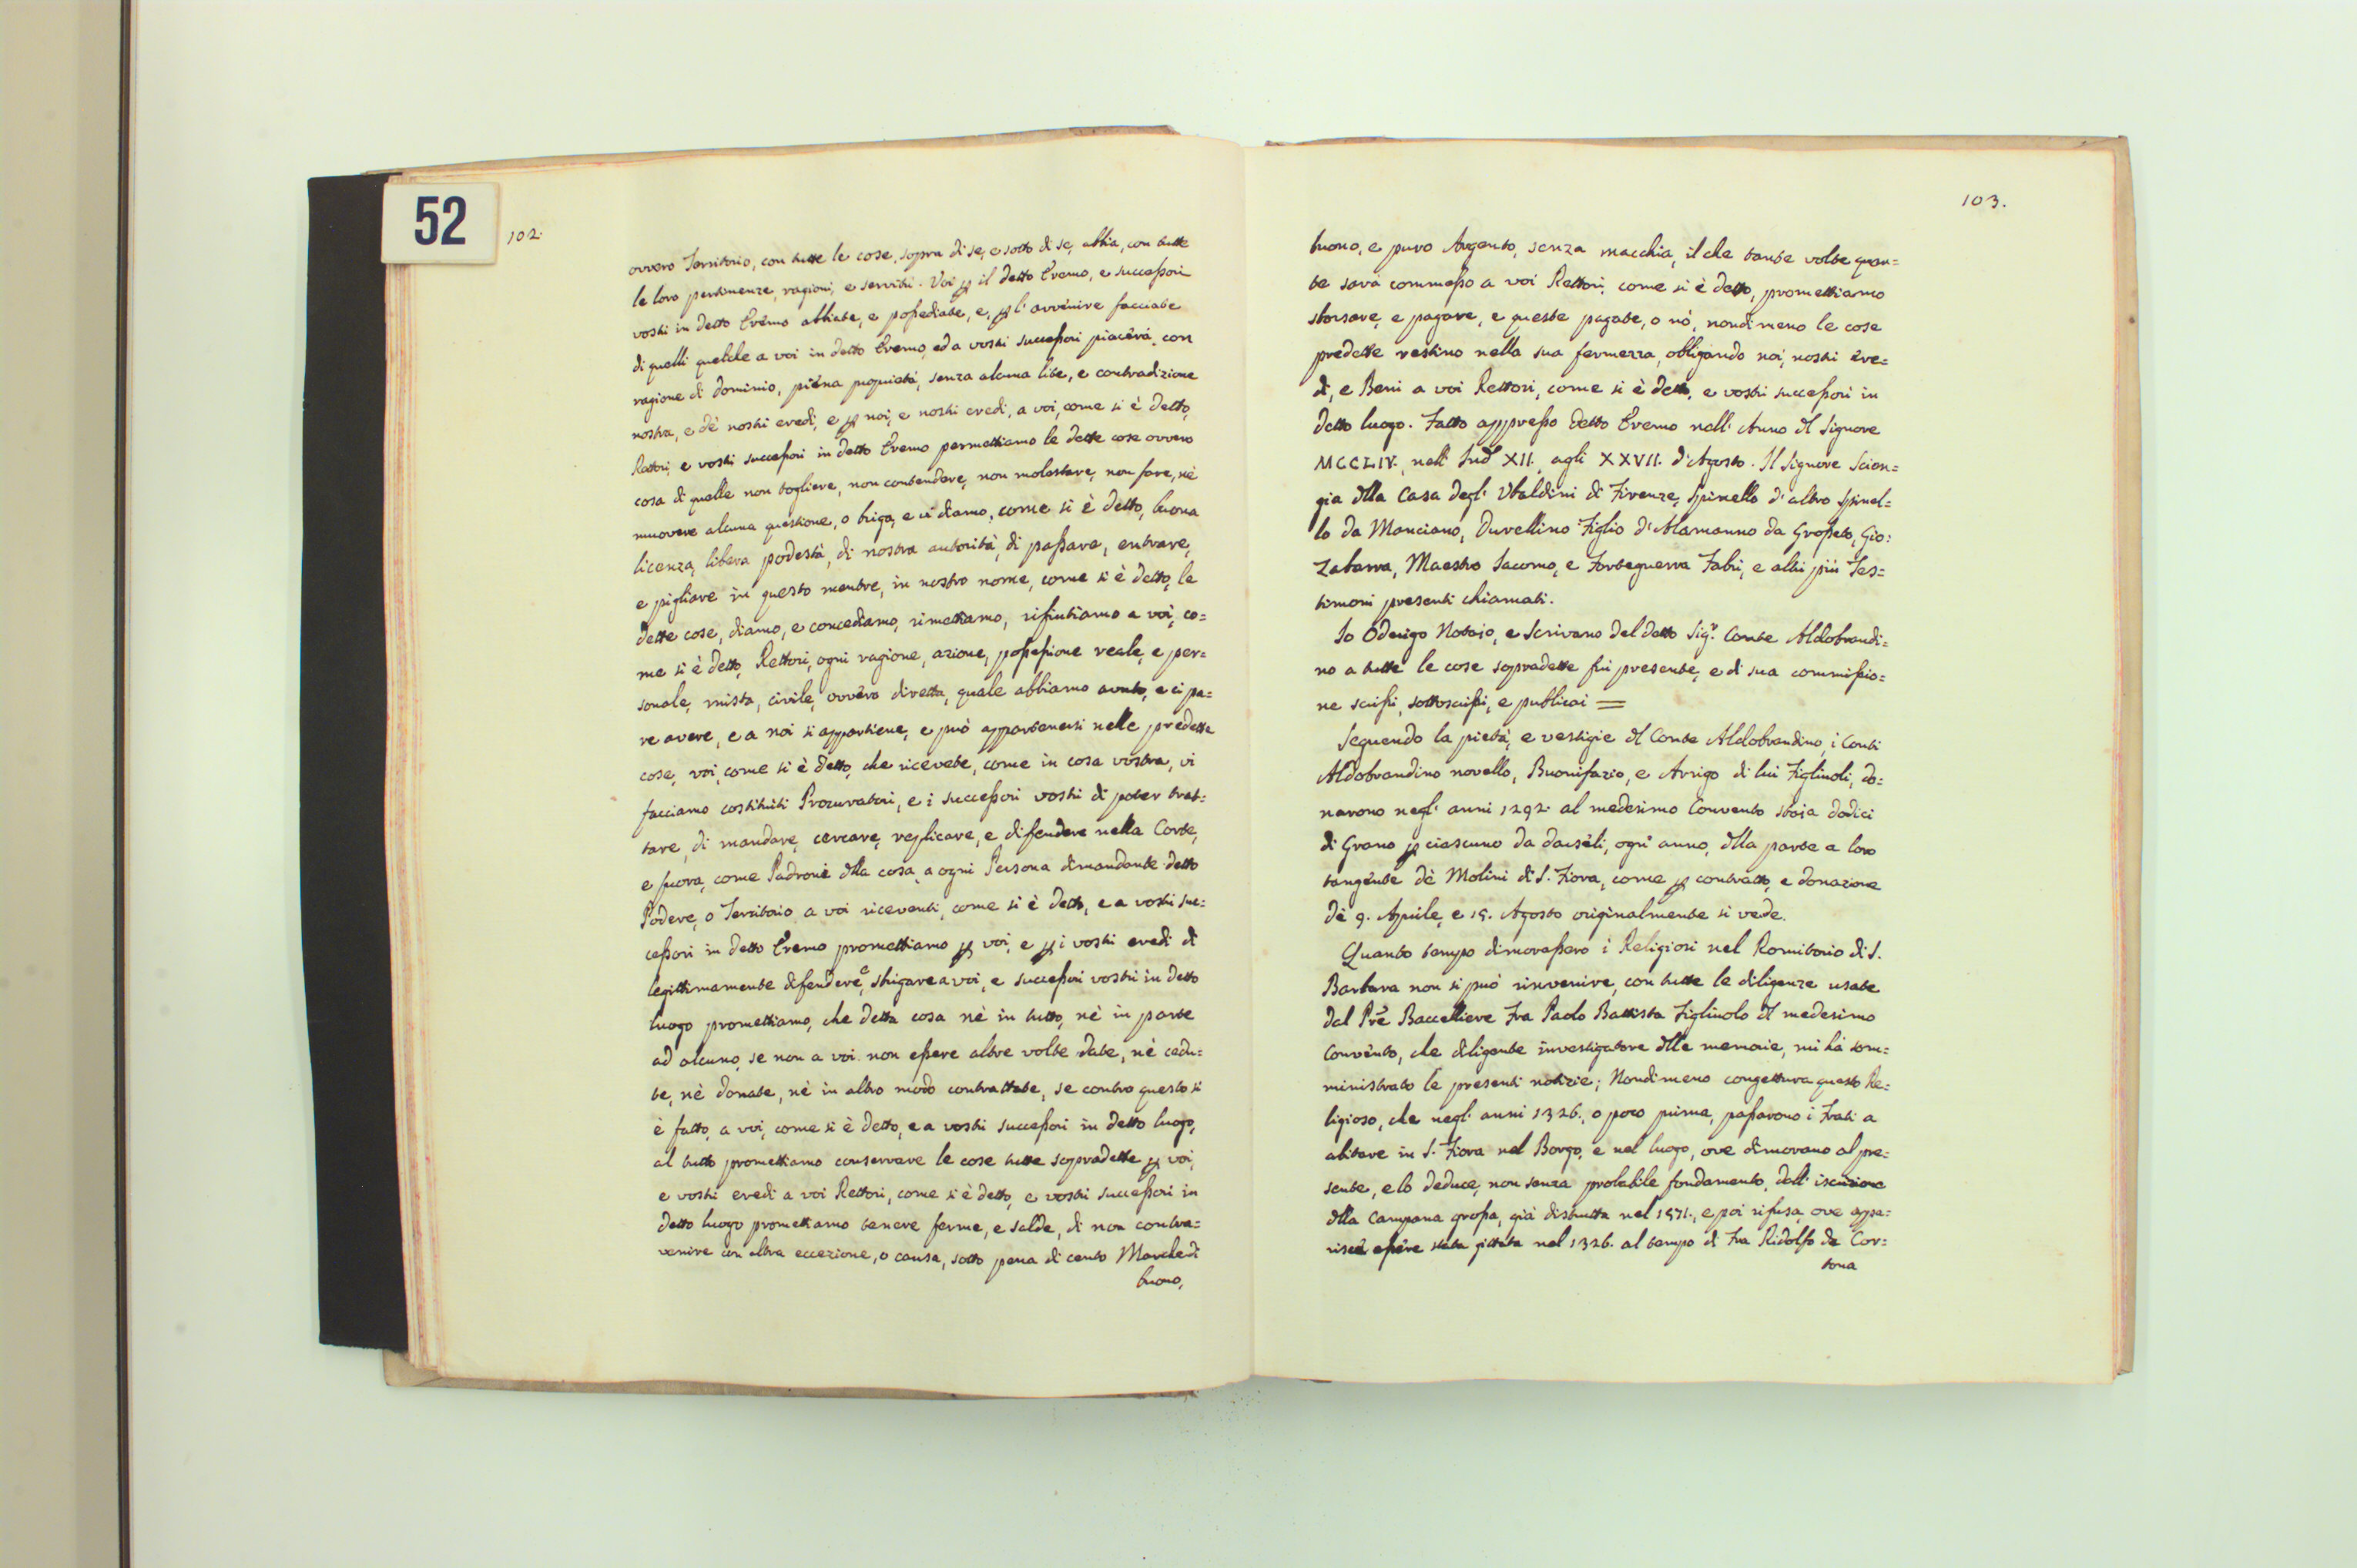 52
102.
ovvero Territorio, con tutte le cose, sopra di se, e sotto di se, abbia, con tutte
le loro pertinenze, ragioni, e servitù. Voi p il detto Eremo, e successori
vostri in detto Eremo abbiate, e possediate, e, p l'avvenire facciate
di quelli quelche a voi in detto Eremo, ed a vostri successori piacerà, con
ragione di dominio, piena proprietà, senza alcuna lite, e contradizione
nostra, e de' nostri eredi, e p noi, e nostri eredi, a voi, come si è detto,
Rettori, e vostri successori in detto Eremo permettiamo le dette cose ovvero
cosa di quelle non togliere, non contendere, non molestare, non fare, nè
muovere alcuna questione, o briga, e vi diamo, come si è detto, buona
licenza, libera podestà, di nostra autorità, di passare, entrare,
e pigliare in questo mentre, in nostro nome, come si è detto, le
dette cose, diamo, e concediamo, rimettiamo, rifiutiamo a voi, co=
me si è detto, Rettori, ogni ragione, azione, possessione reale, e per=
sonale, mista, civile, ovvero diretta, quale abbiamo avuto, e ci pa=
re avere, e a noi si appartiene, e può appartenersi nelle predette
cose, voi, come si è detto, che ricevete, come in cosa vostra, vi
facciamo costituiti Procuratori, e i successori vostri di poter trat=
tare, di mandare, cercare, replicare, e difendere nella Corte,
e fuora, come Padroni dlla cosa, a ogni Persona dimandante detto
Podere, o Territorio a voi riceventi, come si è detto, e a vostri suc=
cessori in detto Eremo promettiamo p voi, e p i vostri eredi di
legittimamente difendere, e strigare a voi, e successori vostri in detto
luogo promettiamo, che detta cosa nè in tutto, nè in parte
ad alcuno, se non a voi non essere altre volte date, nè cedu=
te, nè donate, nè in altro modo contrattate, se contro questo si
è fatto, a voi, come si è detto, e a vostri successori in detto luogo,
al tutto promettiamo conservare le cose tutte sopradette p voi,
e vostri eredi a voi Rettori, come si è detto, e vostri successori in
detto luogo promettiamo tenere ferme, e salde, di non contra=
venire con altra eccezione, o causa, sotto pena di cento Marche di
buono,
103.
buono, e puro Argento, senza macchia, il che tante volte quan=
te sarà commesso a voi Rettori, come si è detto, promettiamo
sborsare, e pagare, e queste pagate, o nò, nondimeno le cose
predette restino nella sua fermezza, obligando noi, nostri ere=
di, e Beni a voi Rettori, come si è detto, e vostri successori in
detto luogo. Fatto appresso detto Eremo nell' Anno dl Signore
MCCLIV. nell' Ind. XII. agli XXVII. d'Agosto. Il Signore Scian=
gia dlla Casa degl' Ubaldini di Firenze, Spinello d'altro Spinel=
lo da Manciano, Duvellino Figlio d'Alamanno da Grosseto, Gio:
Zabarra, Maestro Iacomo, e Forteguerra Fabri, e altri più Tes=
timoni presenti chiamati.
Io Oderigo Notaio, e Scrivano del detto Sig.r Conte Aldobrandi=
no a tutte le cose sopradette fui presente, e di sua commissio=
ne scrissi, sottoscrissi, e publicai =
Seguendo la pietà, e vestigie dl Conte Aldobrandino, i Conti
Aldobrandino novello, Buonifazio, e Arrigo di lui Figliuoli, do=
narono negl' anni 1292. al medesimo Convento staia dodici
di Grano p ciascuno da darseli, ogni anno, dlla parte a loro
tangente dè Molini di S. Fiora, come p contratto, e donazione
dè 9. Aprile, e 15. Agosto originalmente si vede.
Quanto tempo dimorassero i Religiosi nel Romitorio di S.
Barbara non si può rinvenire, con tutte le diligenze usate
dal Prē Baccelliere Fra Paolo Battista Figliuolo dl medesimo
Convento, che diligente investigatore dlle memorie, mi hà som=
ministrato le presenti notizie; Nondimeno congettura questo Re=
ligioso, che negl' anni 1326. o poco prima, passarono i Frati a
abitare in S. Fiora nel Borgo, e nel luogo, ove dimorano al pre=
sente, e lo deduce, non senza probabile fondamento, dall' iscrizione
dlla Campana grossa, già distrutta nel 1571., e poi rifusa, ove appa=
risce essere stata gittata nel 1326. al tempo di Fra Ridolfo da Cor=
tona